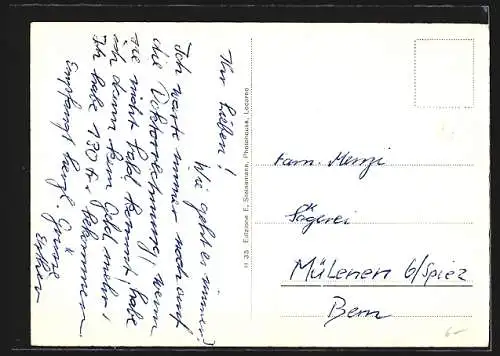 Ihr Lieben!
Wie geht es immer?
Ich warte immer noch auf
die Doktorrechnung, wenn
sie nicht bald kommt, habe
ich dann kein Geld mehr!
Ich habe 130 Fr. bekommen.
Empfangt herzl. Grüsse
H 35 Edizione E. Steinemann, Photohouse, Locarno
Fam. Menzi
Sägerei
Mülenen b/Spiez
Bern